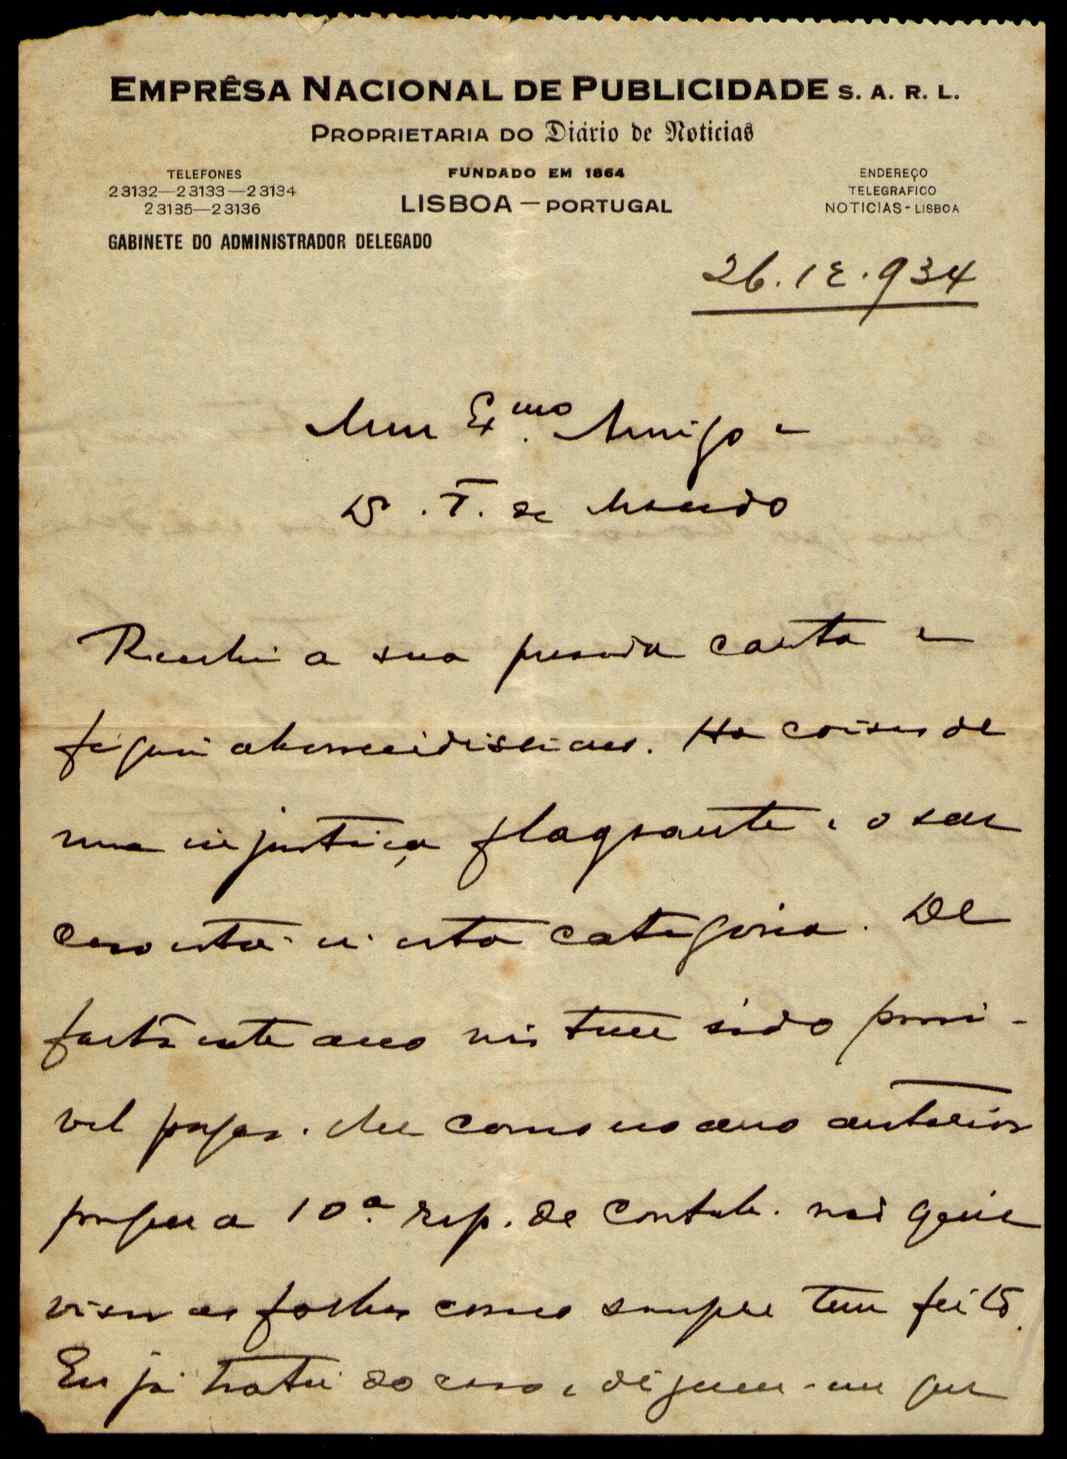 EMPRÊSA NACIONAL DE PUBLICIDADE S. A. R. L.
PROPRIETARIA DO Diário de Noticias
FUNDADO EM 1864
LISBOA — PORTUGAL
TELEFONES
23132—23133—23134
23135—23136
ENDEREÇO
TELEGRAFICO
NOTICIAS - LISBOA
GABINETE DO ADMINISTRADOR DELEGADO
26.12.934
Meu Exmo. Amigo e
Dr. T. de
Recebi a sua presada carta e
fiquei aborrecidissimo. Ha coisas de
uma injustiça flagrante e o seu
caso está n'esta categoria. De
facto este ano não tem sido possi-
vel pagar-lhe como no ano anterior
porque a 10ª rep. de contab. não quiz
visar as folhas como sempre tem feito.
Eu já tratei do caso e dizem-me que